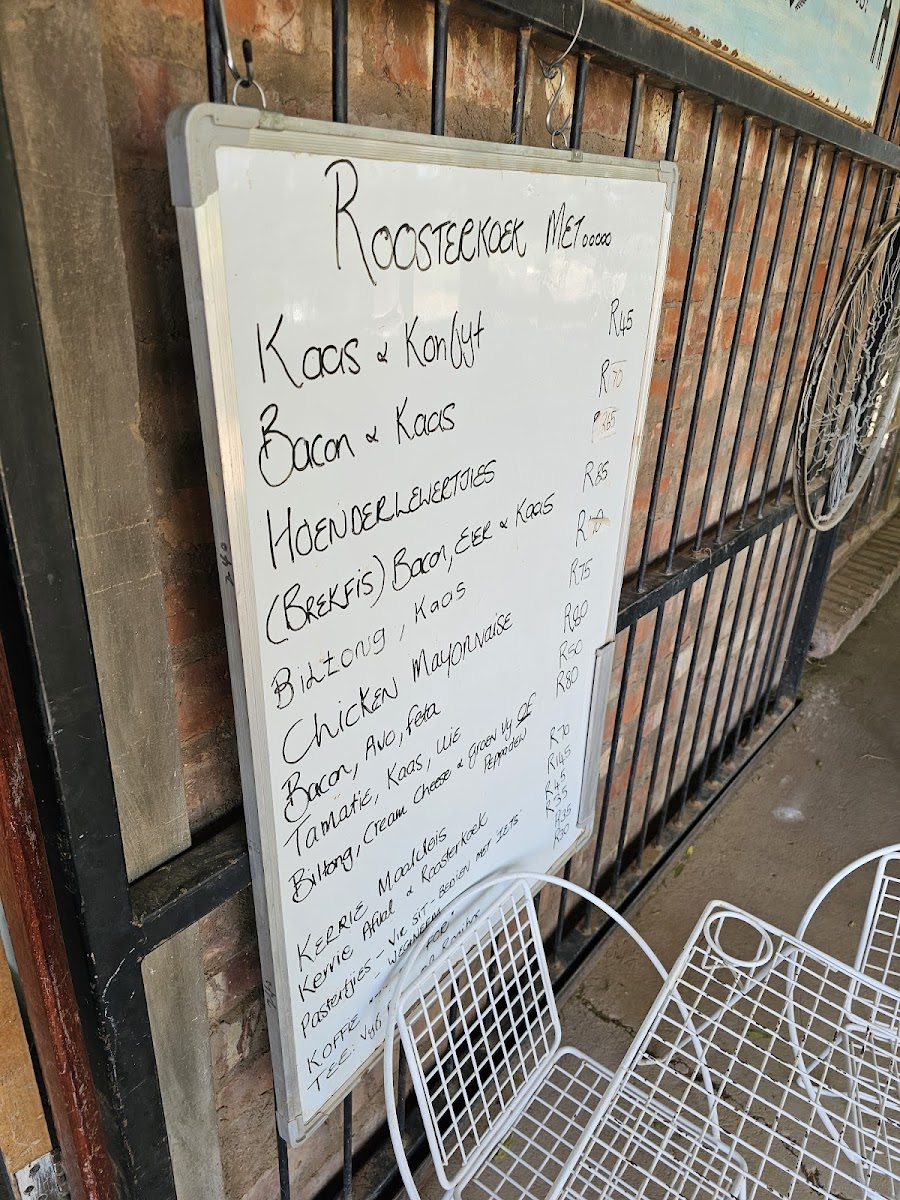 ROOSTERKOEK MET.....
Kaas & Konfyt R45
Bacon & Kaas R70
HOENDERLEWERTJIES R65
(BREKFIS) BACON, EIER & KAAS R85
BILTONG, KAAS
CHICKEN MAYONNAISE R75
Bacon, Avo, Feta R80
TAMATIE, KAAS, UIE
Biltong, Cream Cheese & Groen Vy OF R80
PEPPADEW
KERRIE Maaldeis R70
Kerrie Afval & Roosterkoek R145
Pastertjies - Vir SIT - BEDIEN MET IETS R45
WEGNEEM
KOFFIE R35
TEE: R30